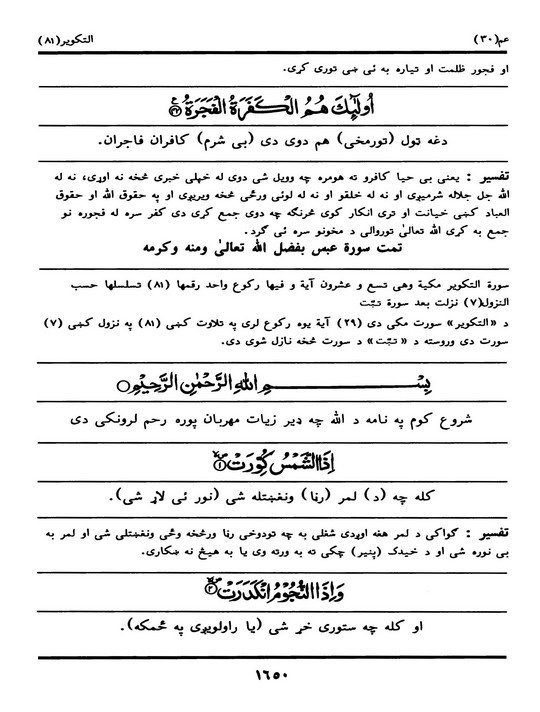 عم(۳۰) التکویر(۸۱)
او فجور ظلمت او تیاره به ئی ښی توری کړی.
أُولَٰئِكَ هُمُ الْكَفَرَةُ الْفَجَرَةُ ۝
دغه ټول (تورمخی) هم دوی دی (بی شرم) کافران فاجران.
تفسیر : یعنی بی حیا کافرو ته هومره چه وویل شی دوی له خپلی خبری څخه نه اوړی، نه له
الله جل جلاله شرمیږی او نه له خلقو او نه له لوئی ورځی څخه ویریږی او په حقوق الله او حقوق
العباد کښی خیانت او تری انکار کوی څرنگه چه دوی جمع کړی دی کفر سره له فجوره نو
جمع به کړی الله تعالیٰ توروالی د مخونو سره ئی گرد.
تمت سورة عبس بفضل الله تعالیٰ ومنه وکرمه
سورة التکویر مکیة وهی تسع و عشرون آیة و فیها رکوع واحد رقمها (۸۱) تسلسلها حسب
النزول(۷) نزلت بعد سورة تبّت
د «التکویر» سورت مکی دی (۲۹) آیة یوه رکوع لری په تلاوت کښی (۸۱) په نزول کښی (۷)
سورت دی وروسته د «تبّت» د سورت څخه نازل شوی دی.
بِسْمِ اللهِ الرَّحْمٰنِ الرَّحِیْمِ ۝
شروع کوم په نامه د الله چه ډیر زیات مهربان پوره رحم لرونکی دی
إِذَا الشَّمْسُ كُوِّرَتْ ۝۱
کله چه (د) لمر (رڼا) ونغښتله شی (نور ئی لاړ شی).
تفسیر : گواکی د لمر هغه اوږدی شغلی به چه تودوخی رڼا ورڅخه وځی ونغښتلی شی او لمر به
بی نوره شی او د خیدک (پنیر) چکی ته به ورته وی یا به هیڅ نه ښکاری.
وَإِذَا النُّجُومُ انْكَدَرَتْ ۝۲
او کله چه ستوری خړ شی (یا راولویږی په ځمکه).
۱۶۵۰